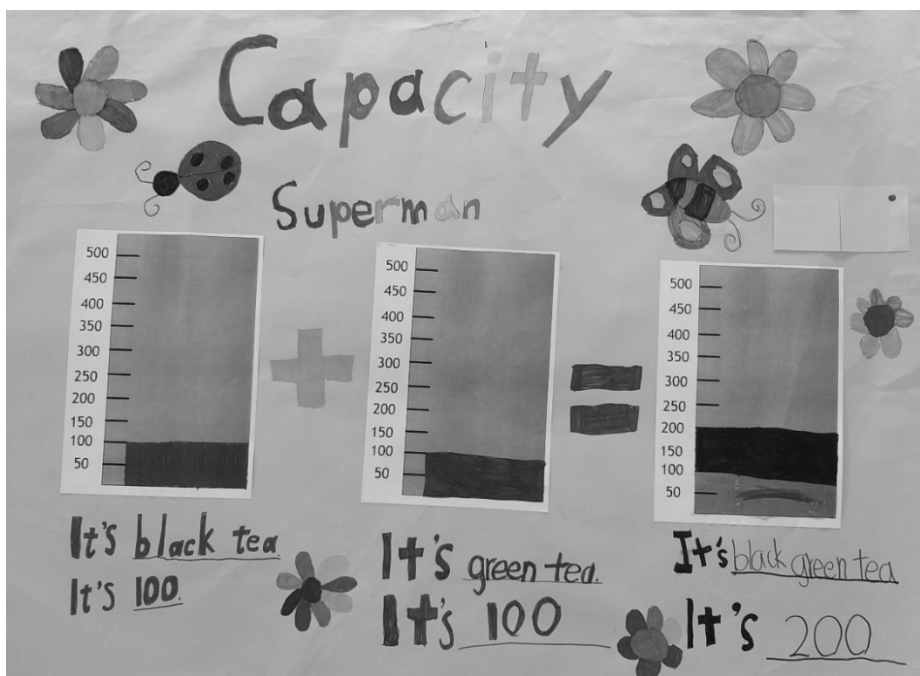 Capacity
Superman
500
450
400
350
300
250
200
150
100
50
500
450
400
350
300
250
200
150
100
50
500
450
400
350
300
250
200
150
100
50
It's black tea.
It's 100.
It's green tea.
It's 100
It's black green tea
It's 200